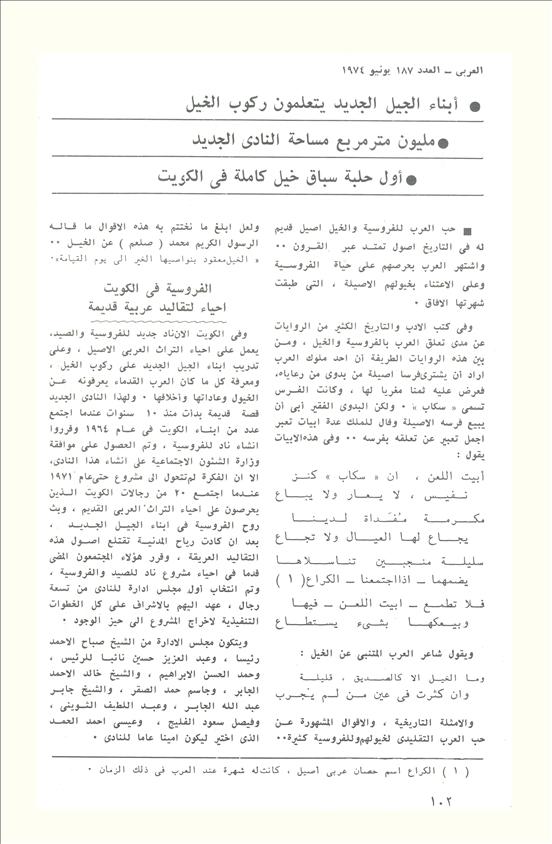 العربى ــ العدد ١٨٧ يونيو ١٩٧٤
● أبناء الجيل الجديد يتعلمون ركوب الخيل
● مليون متر مربع مساحة النادى الجديد
● أول حلبة سباق خيل كاملة فى الكويت
■ حب العرب للفروسية والخيل اصيل قديم
له فى التاريخ اصول تمتد عبر القرون ٠٠
واشتهر العرب بحرصهم على حياة الفروسية
وعلى الاعتناء بخيولهم الاصيلة ، التى طبقت
شهرتها الافاق ٠
وفى كتب الادب والتاريخ الكثير من الروايات
عن مدى تعلق العرب بالفروسية والخيل ، ومن
بين هذه الروايات الطريفة أن احد ملوك العرب
اراد أن يشترى فرسا اصيلة من بدوى من رعاياه،
فعرض عليه ثمنا مغريا لها ، وكانت الفرس
تسمى « سكاب » ٠ ولكن البدوى الفقير أبى أن
يبيع فرسه الاصيلة وقال للملك عدة ابيات تعبر
اجمل تعبير عن تعلقه بفرسه ٠٠ وفى هذه الابيات
يقول :
أبيت اللعن ، ان « سكاب » كنــز
نـفـيـس ، لا يـعـار ولا يبـــاع
مكـرمـــة مُـفـَداة لـديـنــا
يجــاع لهـا العيــال ولا تجـاع
سليلــة منـجـبـيـن تنـاسـلاهــا
يضمهمــا ــ اذا اجتمعنا ــ الكراع( ١ )
فـلا تطمـع ــ ابيت اللعـن ــ فيهـا
وبيـعـكهـا بشىء يسـتـطــاع
ويقول شاعر العرب المتنبى عن الخيل :
ومـا الخيـل الا كالصـديق ، قليلــة
وان كثرت فى عين مـن لـم يُجـرب
والامثلة التاريخية ، والاقوال المشهورة عـن
حب العرب التقليدى لخيولهم وللفروسية كثيرة٠٠
ولعل ابلغ ما نختتم به هذه الاقوال ما قـالـه
الرسول الكريم محمد ( صلعم ) عن الخيـل ٠٠
« الخيل معقود بنواصيها الخير الى يوم القيامة»٠
الفروسية فى الكويت
احياء لتقاليد عربية قديمة
وفى الكويت الان ناد جديد للفروسية والصيد،
يعمل على احياء التراث العربى الاصيل ، وعلى
تدريب ابناء الجيل الجديد على ركوب الخيل ،
ومعرفة كل ما كان العرب القدماء يعرفونه عـن
الخيول وعاداتها وأخلاقها ٠ ولهذا النادى الجديد
قصة قديمة بدأت منذ ١٠ سنوات عندما اجتمع
عدد من ابنـاء الكويت فى عـام ١٩٦٤ وقرروا
انشاء ناد للفروسية ، وتم الحصول على موافقة
وزارة الشئون الاجتماعية على انشاء هذا النادى،
الا ان الفكرة لم تتحول الى مشروع حتى عام ١٩٧١
عندمـا اجتمـع ٢٠ من رجالات الكويت الـذين
يحرصون على احياء التراث العربى القديم ، وبث
روح الفروسية فى ابنـاء الجيـل الجديـد ،
بعد ان كادت رياح المدنيـة تقتلع اصـول هـذه
التقاليد العريقة ، وقرر هؤلاء المجتمعون المضى
قدما فى احياء مشروع ناد للصيد والفروسية ،
وتم انتخاب اول مجلس ادارة للنادى من تسعة
رجال ، عهد اليهم بالاشراف على كل الخطوات
التنفيذية لاخراج المشروع الى حيز الوجود ٠
ويتكون مجلس الادارة من الشيخ صباح الاحمد
رئيسـا ، وعبد العزيز حسين نائبا للرئيس ،
وحمد الحسن الابراهيم ، والشيخ خالد الاحمد
الجابر ، وجاسم حمد الصقر ، والشيخ جابر
عبد الله الجابـر ، وعبـد اللطيف الثـوينى ،
وفيصل سعود الفليج ، وعيسى احمد الحمـد
الذى اختير ليكون امينا عاما للنادى ٠
( ١ ) الكراع اسم حصان عربى أصيل ، كانت له شهرة عند العرب فى ذلك الزمان ٠
١٠٢